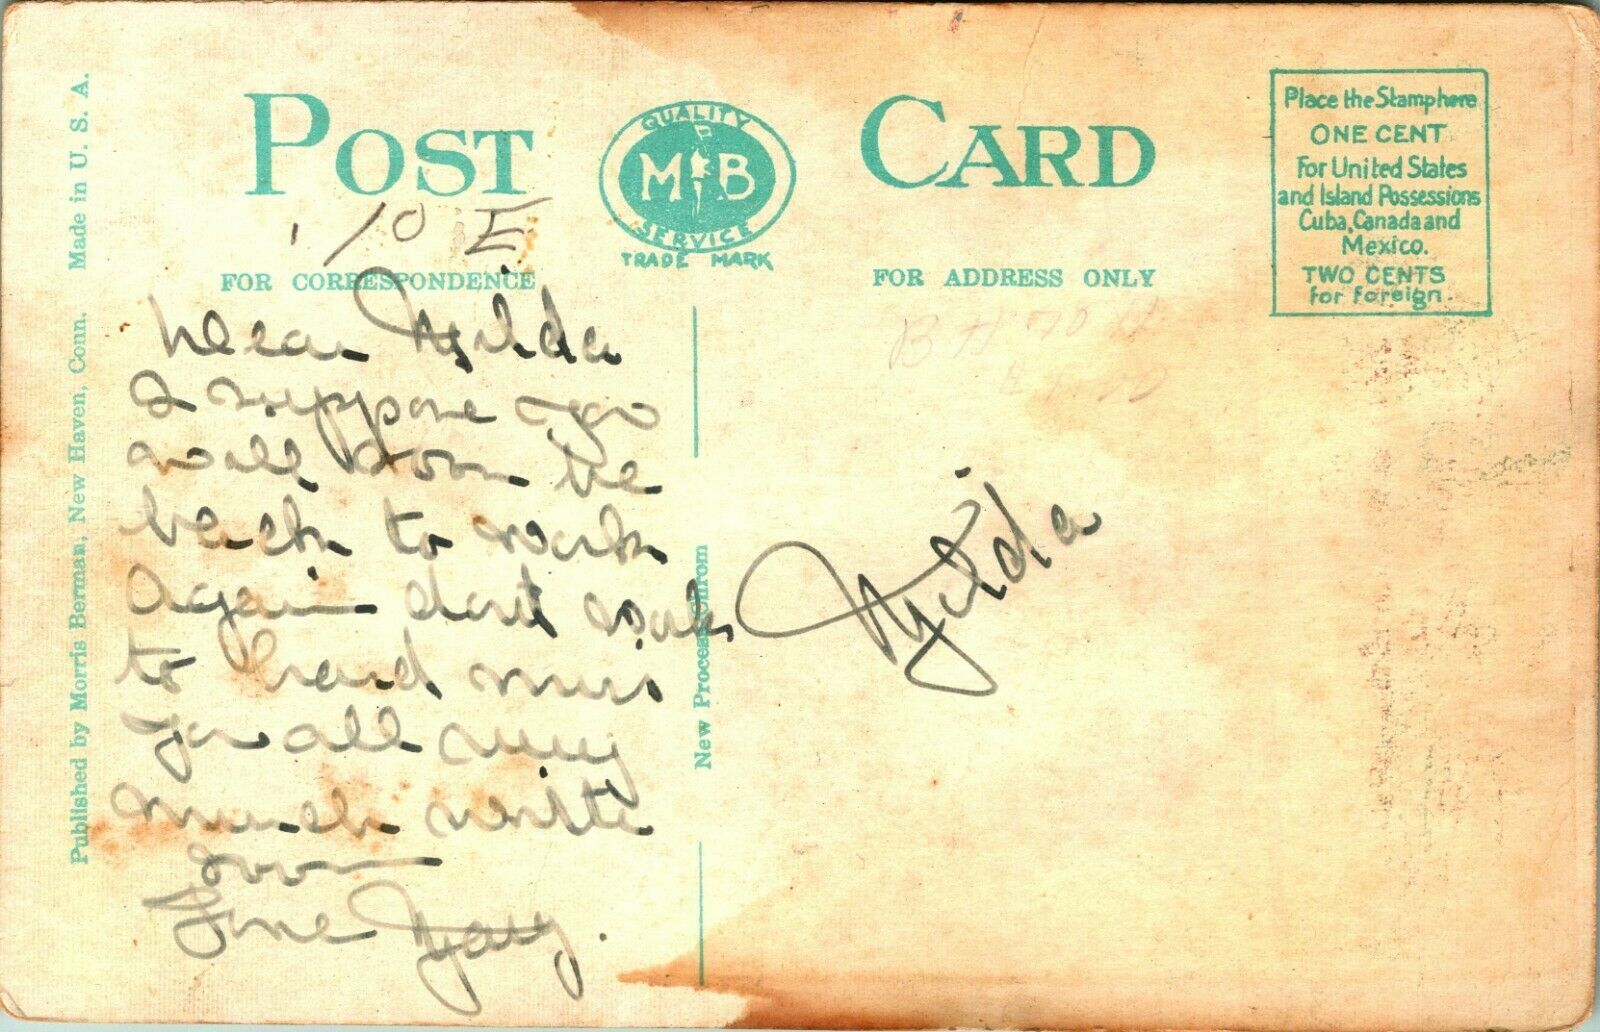 POST CARD
QUALITY
M B
SERVICE
TRADE MARK
Place the Stamp here
ONE CENT
For United States
and Island Possessions
Cuba, Canada and
Mexico.
TWO CENTS
for foreign.
10 E
FOR CORRESPONDENCE
FOR ADDRESS ONLY
Dear Hilda
I suppose you
will soon be
back to work
again dont work
to hard miss
you all very
much write
soon
Love
Hilda
Published by Morris Berman, New Haven, Conn. Made in U. S. A.
New Process Chrom